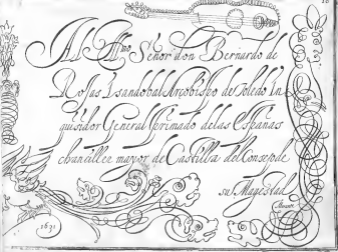 Al Illmo Señor don Bernardo de
Rojas Ysandobal Arcobispo de Toledo in
quisidor General primado de las Españas
chanciller mayor de Castilla del Consejo de
su Magestad
1631